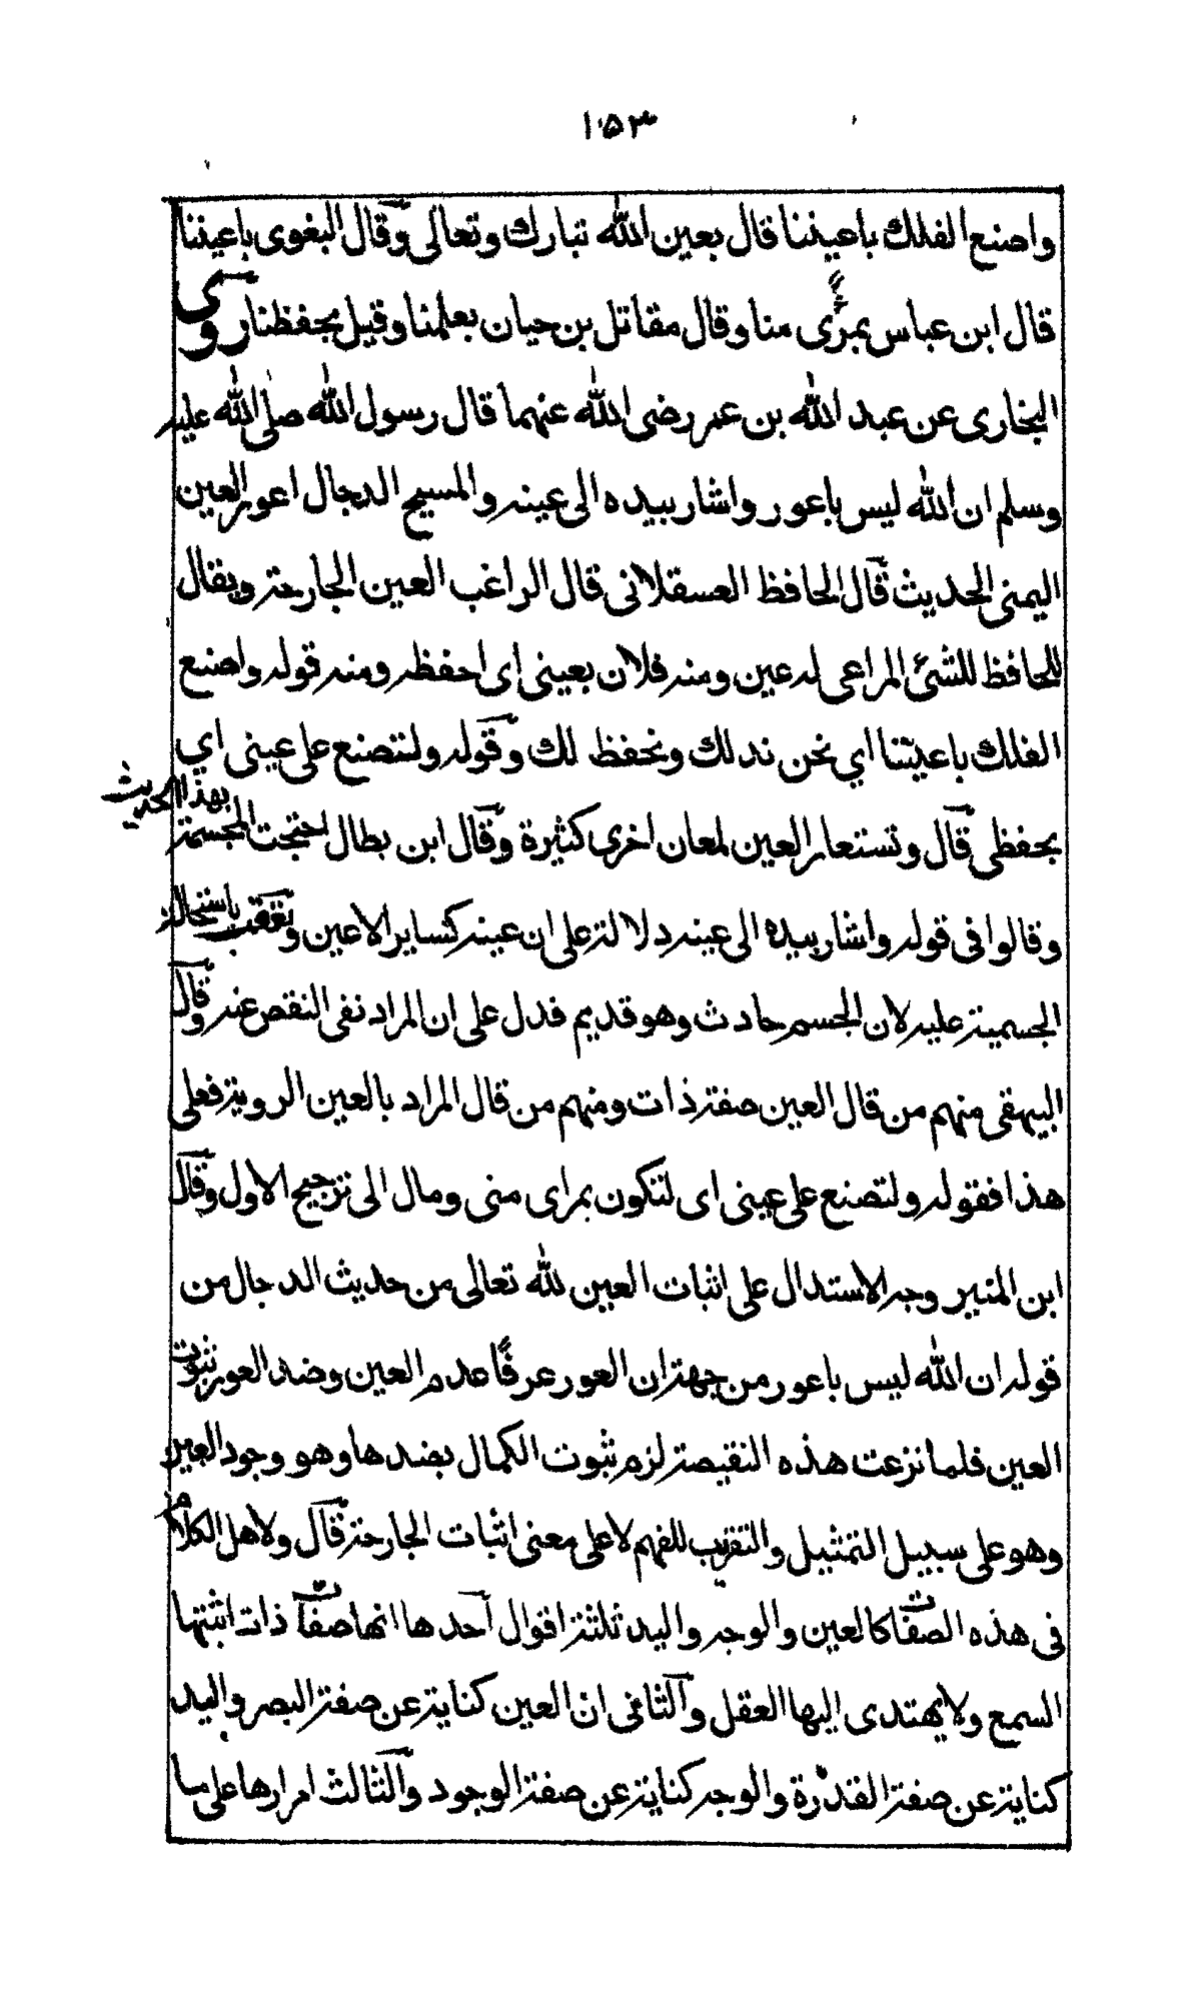 ١٥٣
واصنع الفلك باعيننا قال بعين الله تبارك وتعالى وقال البغوى باعيننا
قال ابن عباس بمرَّى منا وقال مقاتل بن حيان بعلمنا وقيل بحفظنا روى
البخارى عن عبد الله بن عمر رضى الله عنهما قال رسول الله صلى الله عليه
وسلم ان الله ليس باعور واشار بيده الى عينه والمسيح الدجال اعور العين
اليمنى الحديث قال الحافظ العسقلانى قال الراغب العين الجارحة ويقال
للحافظ للشئ المراعى له عين ومنه فلان بعينى اى احفظه ومنه قوله واصنع
الفلك باعيننا اي نحن ندلك ونحفظ لك وقوله ولتصنع على عينى اي
بحفظى قال وتستعار العين لمعان اخرى كثيرة وقال ابن بطال احتجت المجسمة بهذا الحديث
وقالوا فى قوله واشار بيده الى عينه دلالة على ان عينه كساير الاعين وتعقب باستحالة
الجسمية عليه لان الجسم حادث وهو قديم فدل على ان المراد نفى النقص عنه وقال
البيهقى منهم من قال العين صفة ذات ومنهم من قال المراد بالعين الروية فعلى
هذا فقوله ولتصنع على عينى اى لتكون بمراى منى ومال الى ترجيح الاول وقال
ابن المنير وجه الاستدال على اثبات العين لله تعالى من حديث الدجال من
قوله ان الله ليس باعور من جهة ان العور عرفًا عدم العين وضد العور ثبوت
العين فلما نزعت هذه النقيصة لزم ثبوت الكمال بضدها وهو وجود العين
وهو على سبيل التمثيل والتقريب للفهم لا على معنى اثبات الجارحة قال ولاهل الكلام
فى هذه الصفات كالعين والوجه واليد ثلثة اقوال احدها انها صفات ذات اثبتها
السمع ولا يهتدى اليها العقل والثانى ان العين كناية عن صفة البصر واليد
كناية عن صفة القدرة والوجه كناية عن صفة الوجود والثالث امرارها على ما